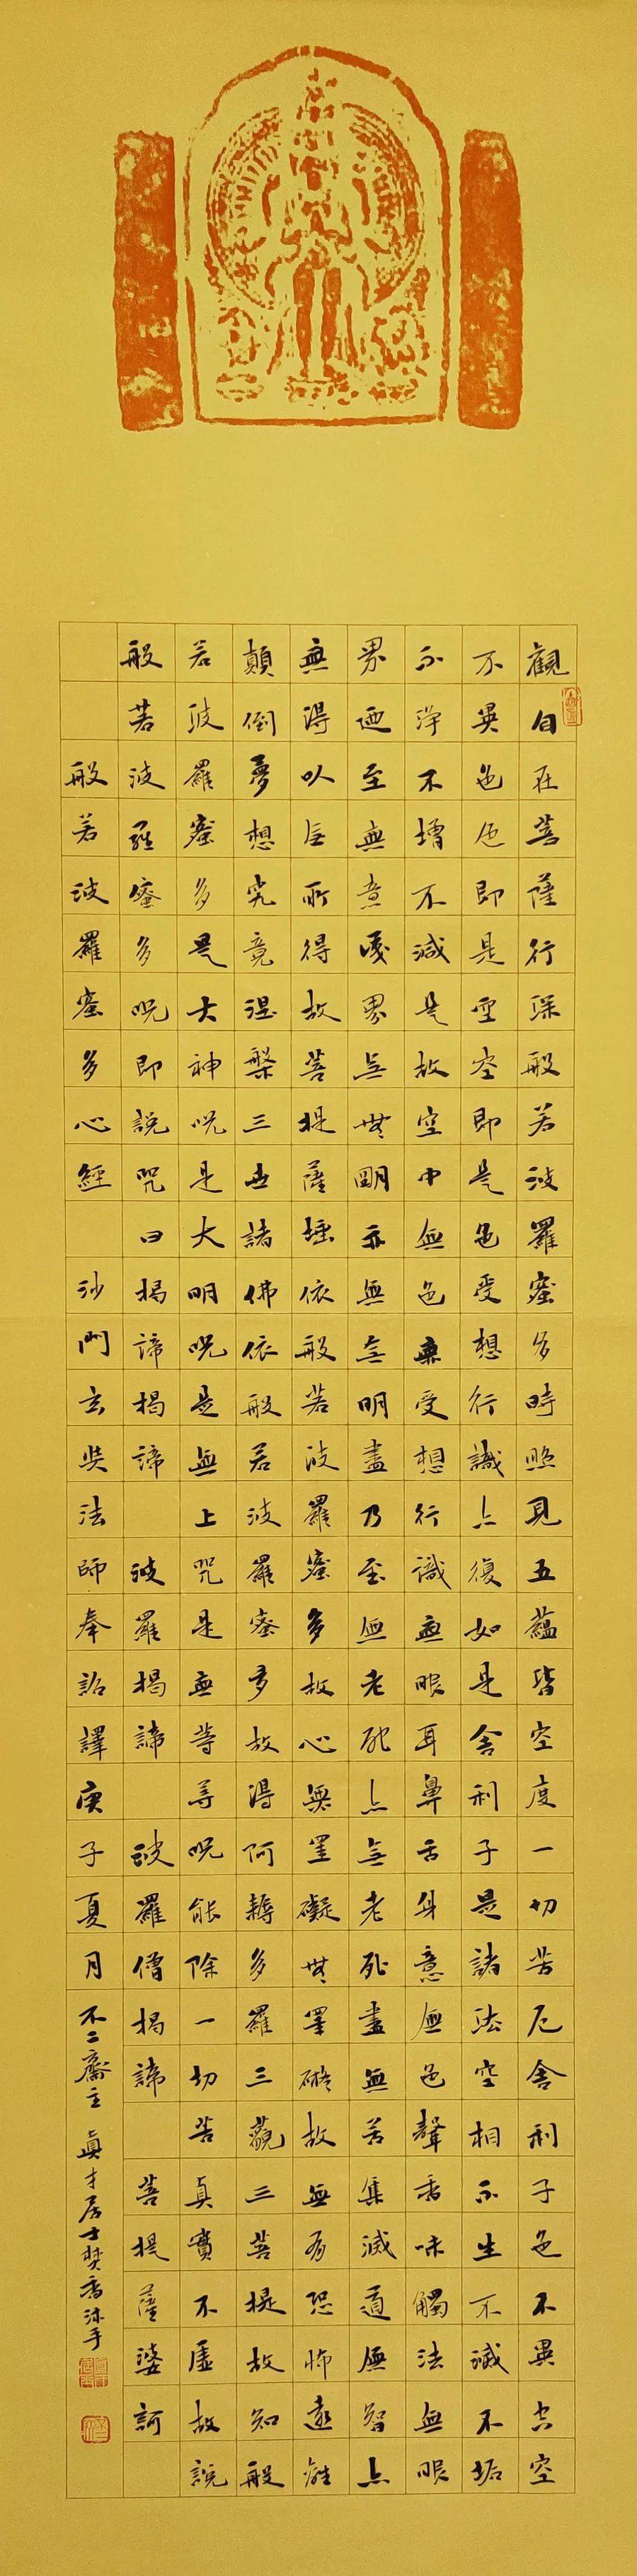 觀自在菩薩行深般若波羅蜜多時照見五蘊皆空度一切苦厄舍利子色不異空空
不異色色即是空空即是色受想行識亦復如是舍利子是諸法空相不生不滅不垢
不淨不增不減是故空中無色無受想行識無眼耳鼻舌身意無色聲香味觸法無眼
界迺至無意識界無無明亦無無明盡乃至無老死亦無老死盡無苦集滅道無智亦
無得以無所得故菩提薩埵依般若波羅蜜多故心無罣礙無罣礙故無有恐怖遠離
顛倒夢想究竟涅槃三世諸佛依般若波羅蜜多故得阿耨多羅三藐三菩提故知般
若波羅蜜多是大神呪是大明呪是無上咒是無等等呪能除一切苦真實不虛故說
般若波羅蜜多呪即說咒曰揭諦揭諦 波羅揭諦 波羅僧揭諦 菩提薩婆訶
般若波羅蜜多心經 沙門玄奘法師奉詔譯庚子夏月 不二齋主 真才居士焚香沐手